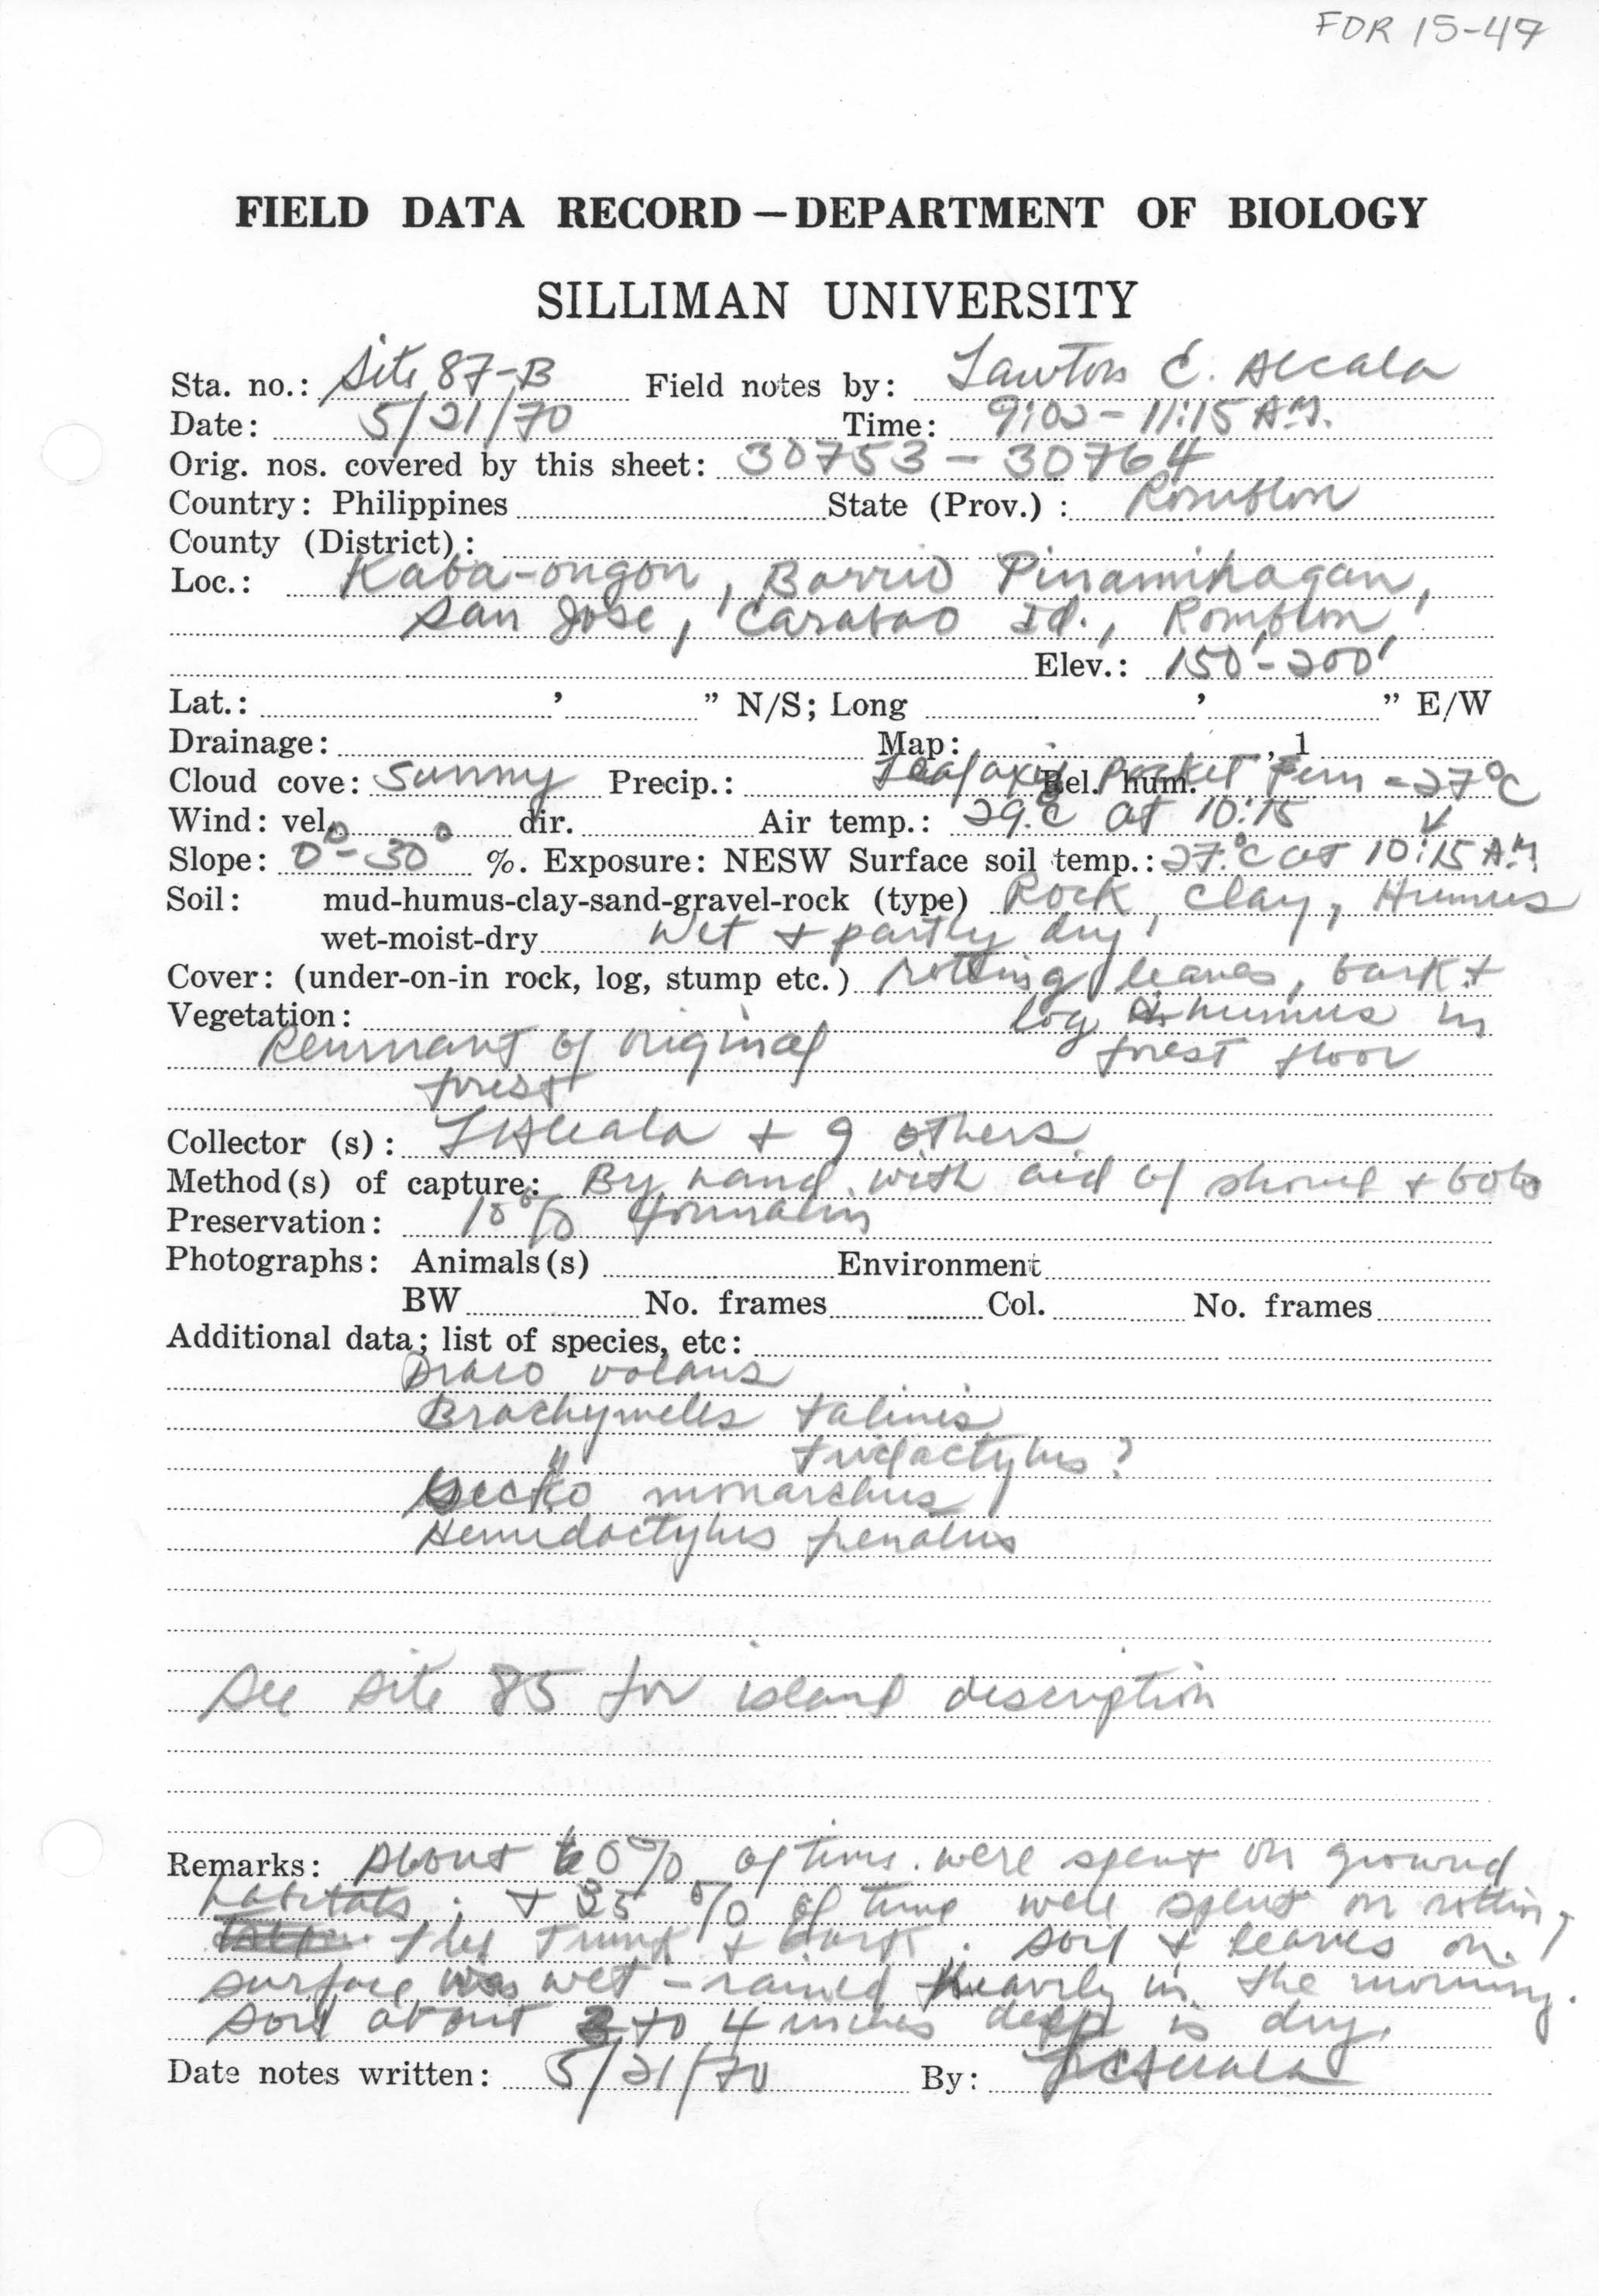 FDR 15-47
FIELD DATA RECORD — DEPARTMENT OF BIOLOGY
SILLIMAN UNIVERSITY
Sta. no.: Site 87-B Field notes by: Lawton E. Alcala
Date: 5/21/70 Time: 9:00 - 11:15 A.M.
Orig. nos. covered by this sheet: 30753 - 30764
Country: Philippines State (Prov.) : Romblon
County (District) :
Loc.: Kaba-ongon, Barrio Pinamihagan,
San Jose, Carabao Id., Romblon,
Elev.: 150'-200'
Lat.: ' " N/S; Long ' " E/W
Drainage: Map: , 1
Cloud cove: Sunny Precip.: Rel. hum. Leaf axil Pocket Fern = 27°C
Wind: vel. 0 dir. Air temp.: 29.°C at 10:15
Slope: 0°-30° %. Exposure: NESW Surface soil temp.: 27.°C at 10:15 A.M
Soil: mud-humus-clay-sand-gravel-rock (type) Rock, clay, Humus
wet-moist-dry Wet + partly dry
Cover: (under-on-in rock, log, stump etc.) rotting leaves, bark +
Vegetation: log humus in
Remnant of original forest floor
forest
Collector (s) : LAlcala + 9 others
Method(s) of capture: By hand with aid of shovel + bolo
Preservation: 10% formalin
Photographs: Animals(s) Environment
BW No. frames Col. No. frames
Additional data; list of species, etc:
Draco volans
Brachymeles talinis
" tridactylus?
Gecko monarchus
Hemidactylus frenatus
See site 85 for island description
Remarks: About 60% of time were spent on ground
habitats; + 35% of time were spent on rotting
tree trunk + bark. Soil + leaves on
surface was wet - rained heavily in the morning.
Soil about 3 to 4 inches deep is dry.
Date notes written: 5/21/70 By: LCAlcala